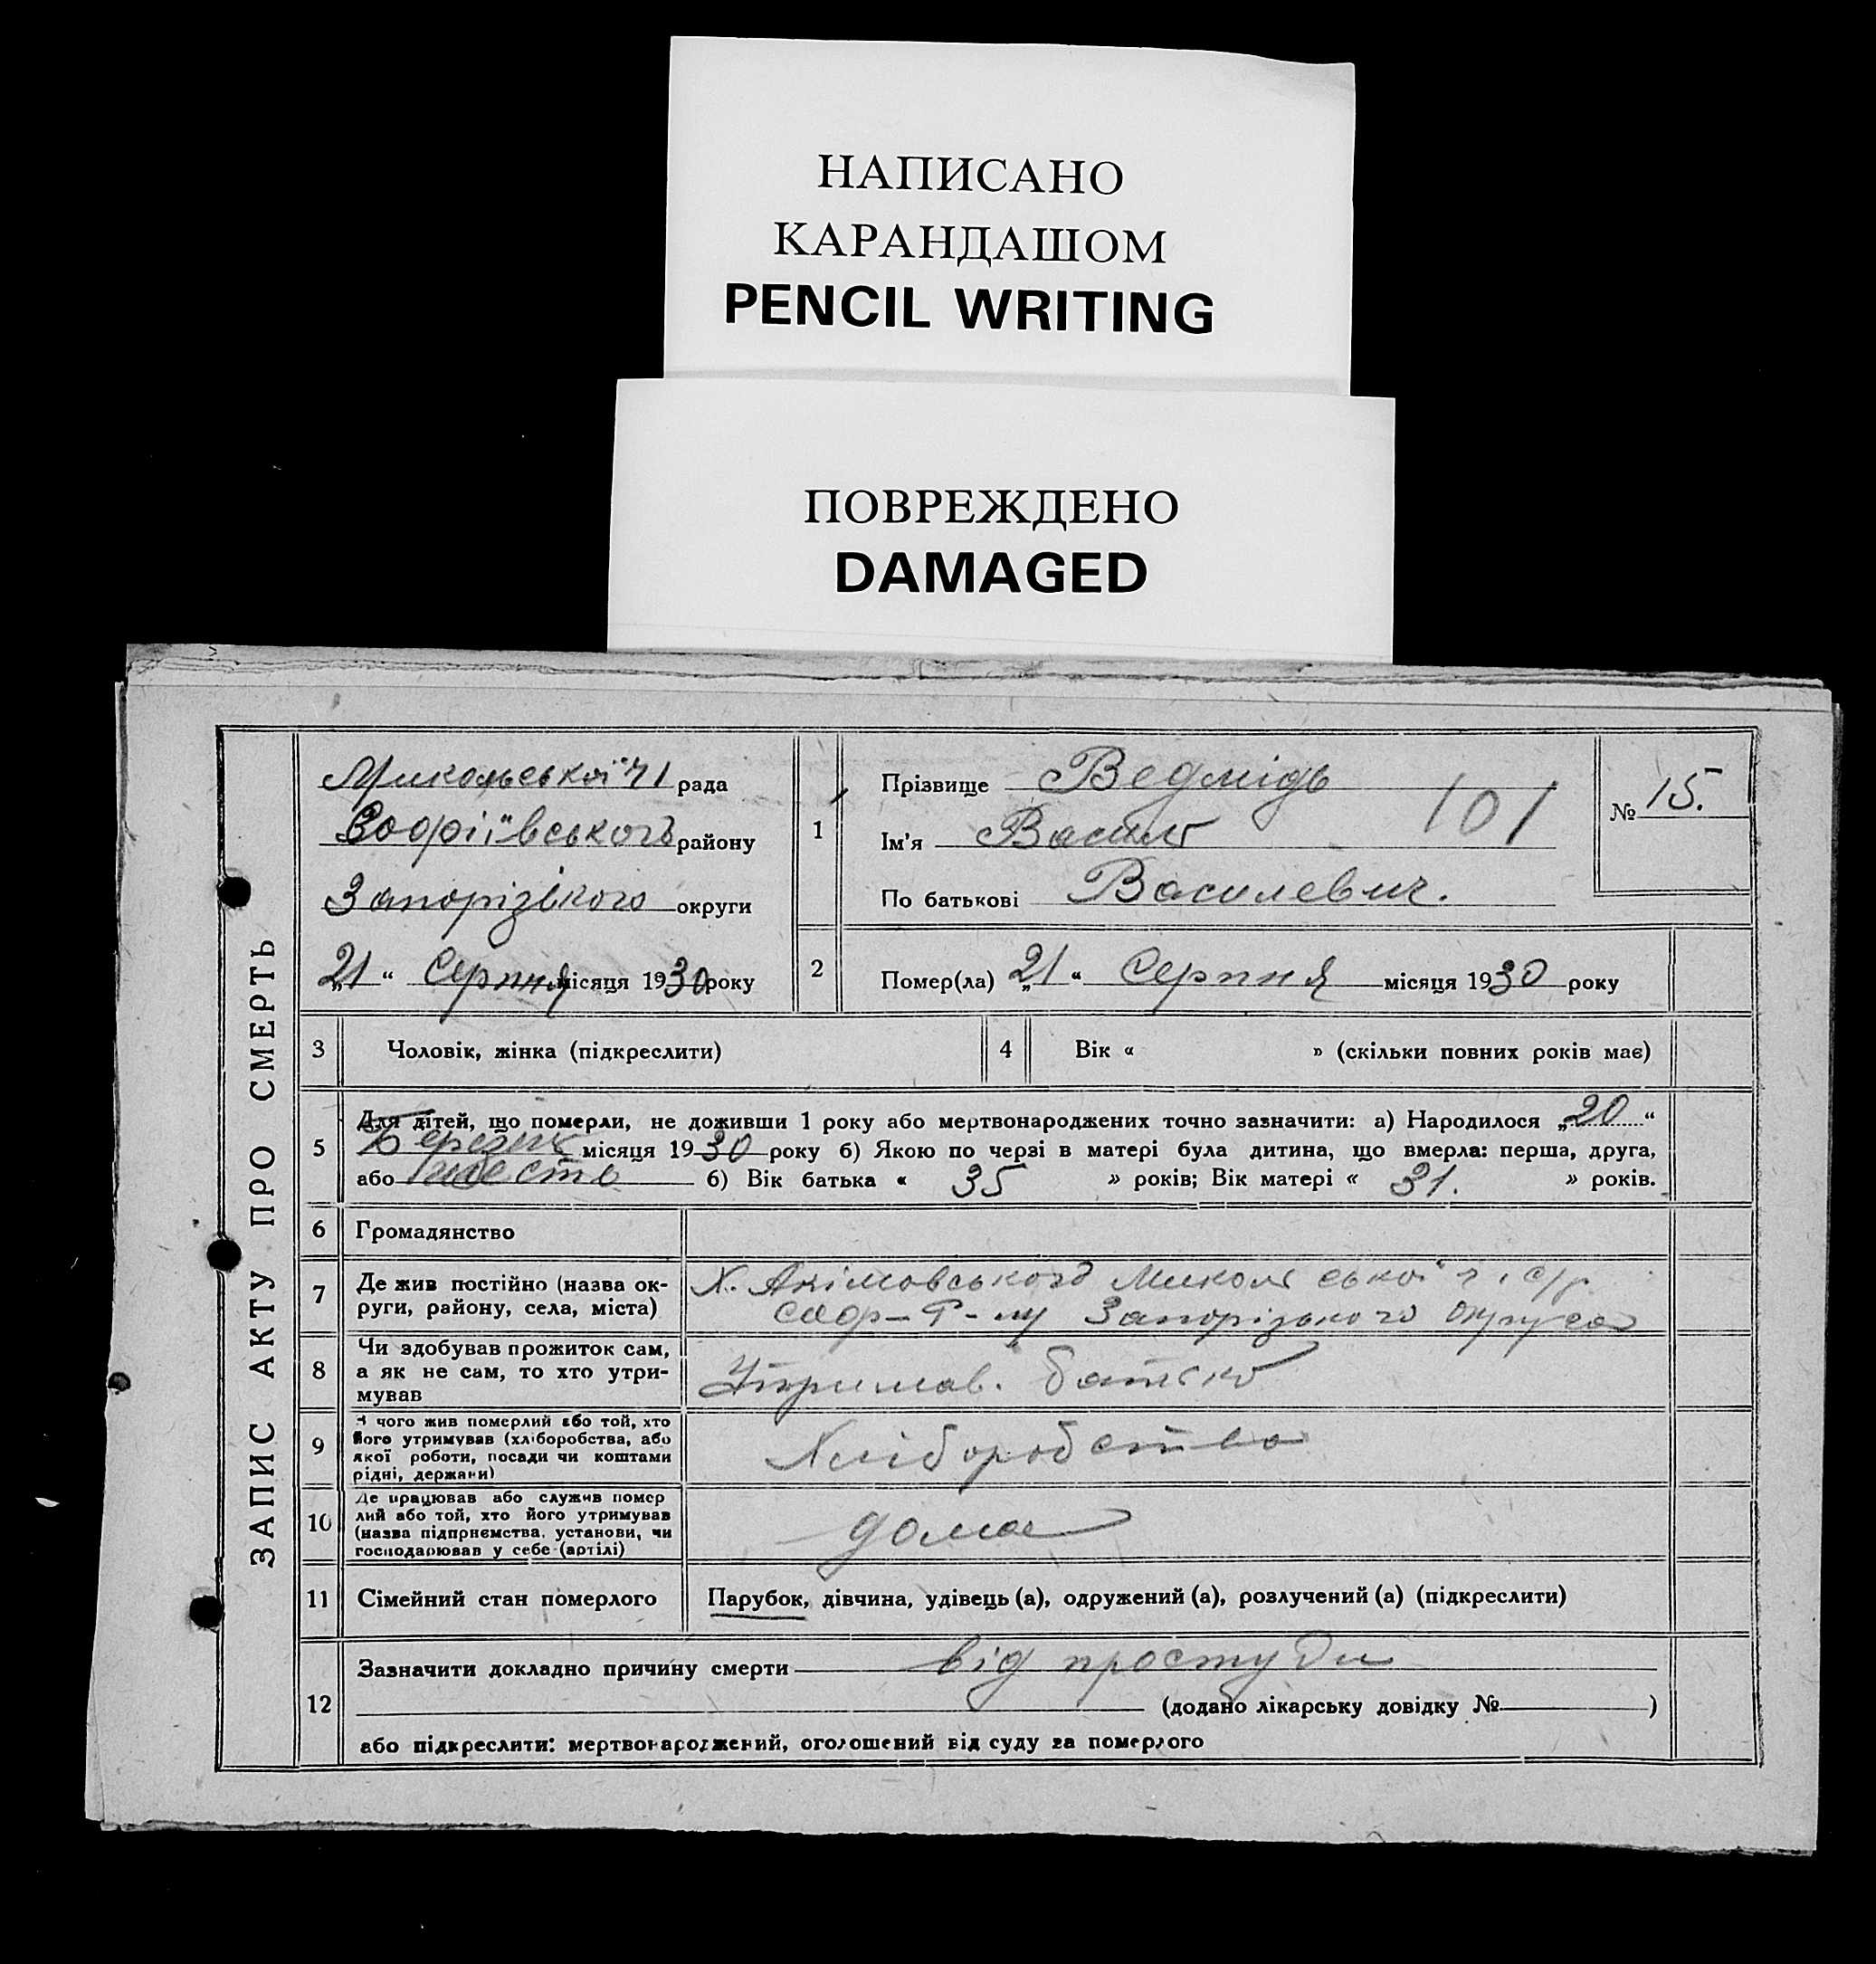 НАПИСАНО
КАРАНДАШОМ
PENCIL WRITING
ПОВРЕЖДЕНО
DAMAGED
ЗАПИС АКТУ ПРО СМЕРТЬ
рада
Софіївського району
Запорізького округи
„21“ Серпня місяця 1930 року
1
Прізвище Ведмідь
Ім'я Василь
101
По батькові Василевич.
№ 15.
2
Помер(ла) „21“ Серпня місяця 1930 року
3 Чоловік, жінка (підкреслити)
4 Вік « » (скільки повних років має)
5
Для дітей, що померли, не доживши 1 року або мертвонароджених точно зазначити: а) Народилося „20“
Березня місяця 1930 року б) Якою по черзі в матері була дитина, що вмерла: перша, друга,
або шеста б) Вік батька « 35 » років; Вік матері « 31. » років.
6 Громадянство
7
Де жив постійно (назва ок-
руги, району, села, міста)
Х. Акімовського с/р.
Соф-Р-ну Запорізького округа
8
Чи здобував прожиток сам,
а як не сам, то хто утри-
мував
Утримав. батько
9
З чого жив померлий або той, хто
його утримував (хліборобства, або
якої роботи, посади чи коштами
рідні, держави)
Хліборобство
10
Де працював або служив помер
лий або той, хто його утримував
(назва підприємства, установи, чи
господарював у себе (артілі)
дома
11 Сімейний стан померлого
Парубок, дівчина, удівець (а), одружений (а), розлучений (а) (підкреслити)
12
Зазначити докладно причину смерти від простуди
(додано лікарську довідку № )
або підкреслити: мертвонароджений, оголошений від суду за померлого